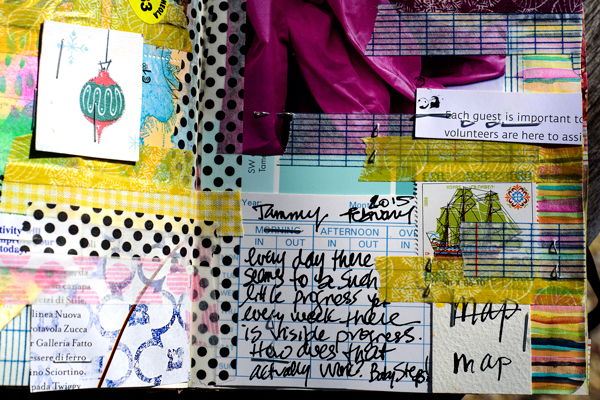 Each guest is important to
volunteers are here to assi
SW
Tam
Year:
Mont
Tammy February 2015
MORNING AFTERNOON OV
IN OUT IN OUT IN
every day there
seems to be such
little progress yet
every week there
is visible progress.
How does that
actually work. Baby Steps!
map,
map
tivity
mpre
toda
estri di Stile,
linea Nuova
otavola Zucca
r Galleria Fatto
essere di ferro
ino Sciortino.
pada Twiggy